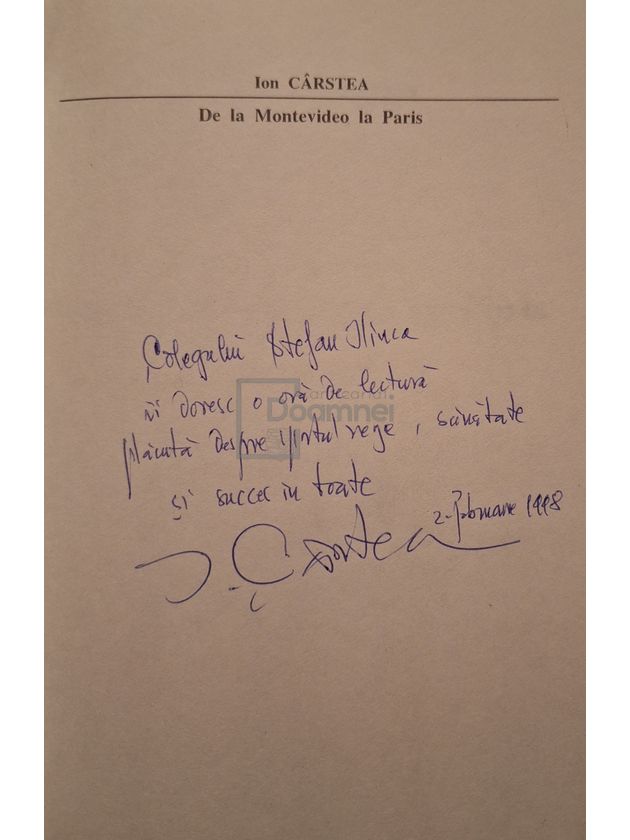 Ion CÂRSTEA
De la Montevideo la Paris
Colegului Ștefan Ilinca
îi doresc o oră de lectură
plăcută despre sportul rege, sănătate
și succes in toate
2-Februarie 1998
I. Cârstea
Doamnei